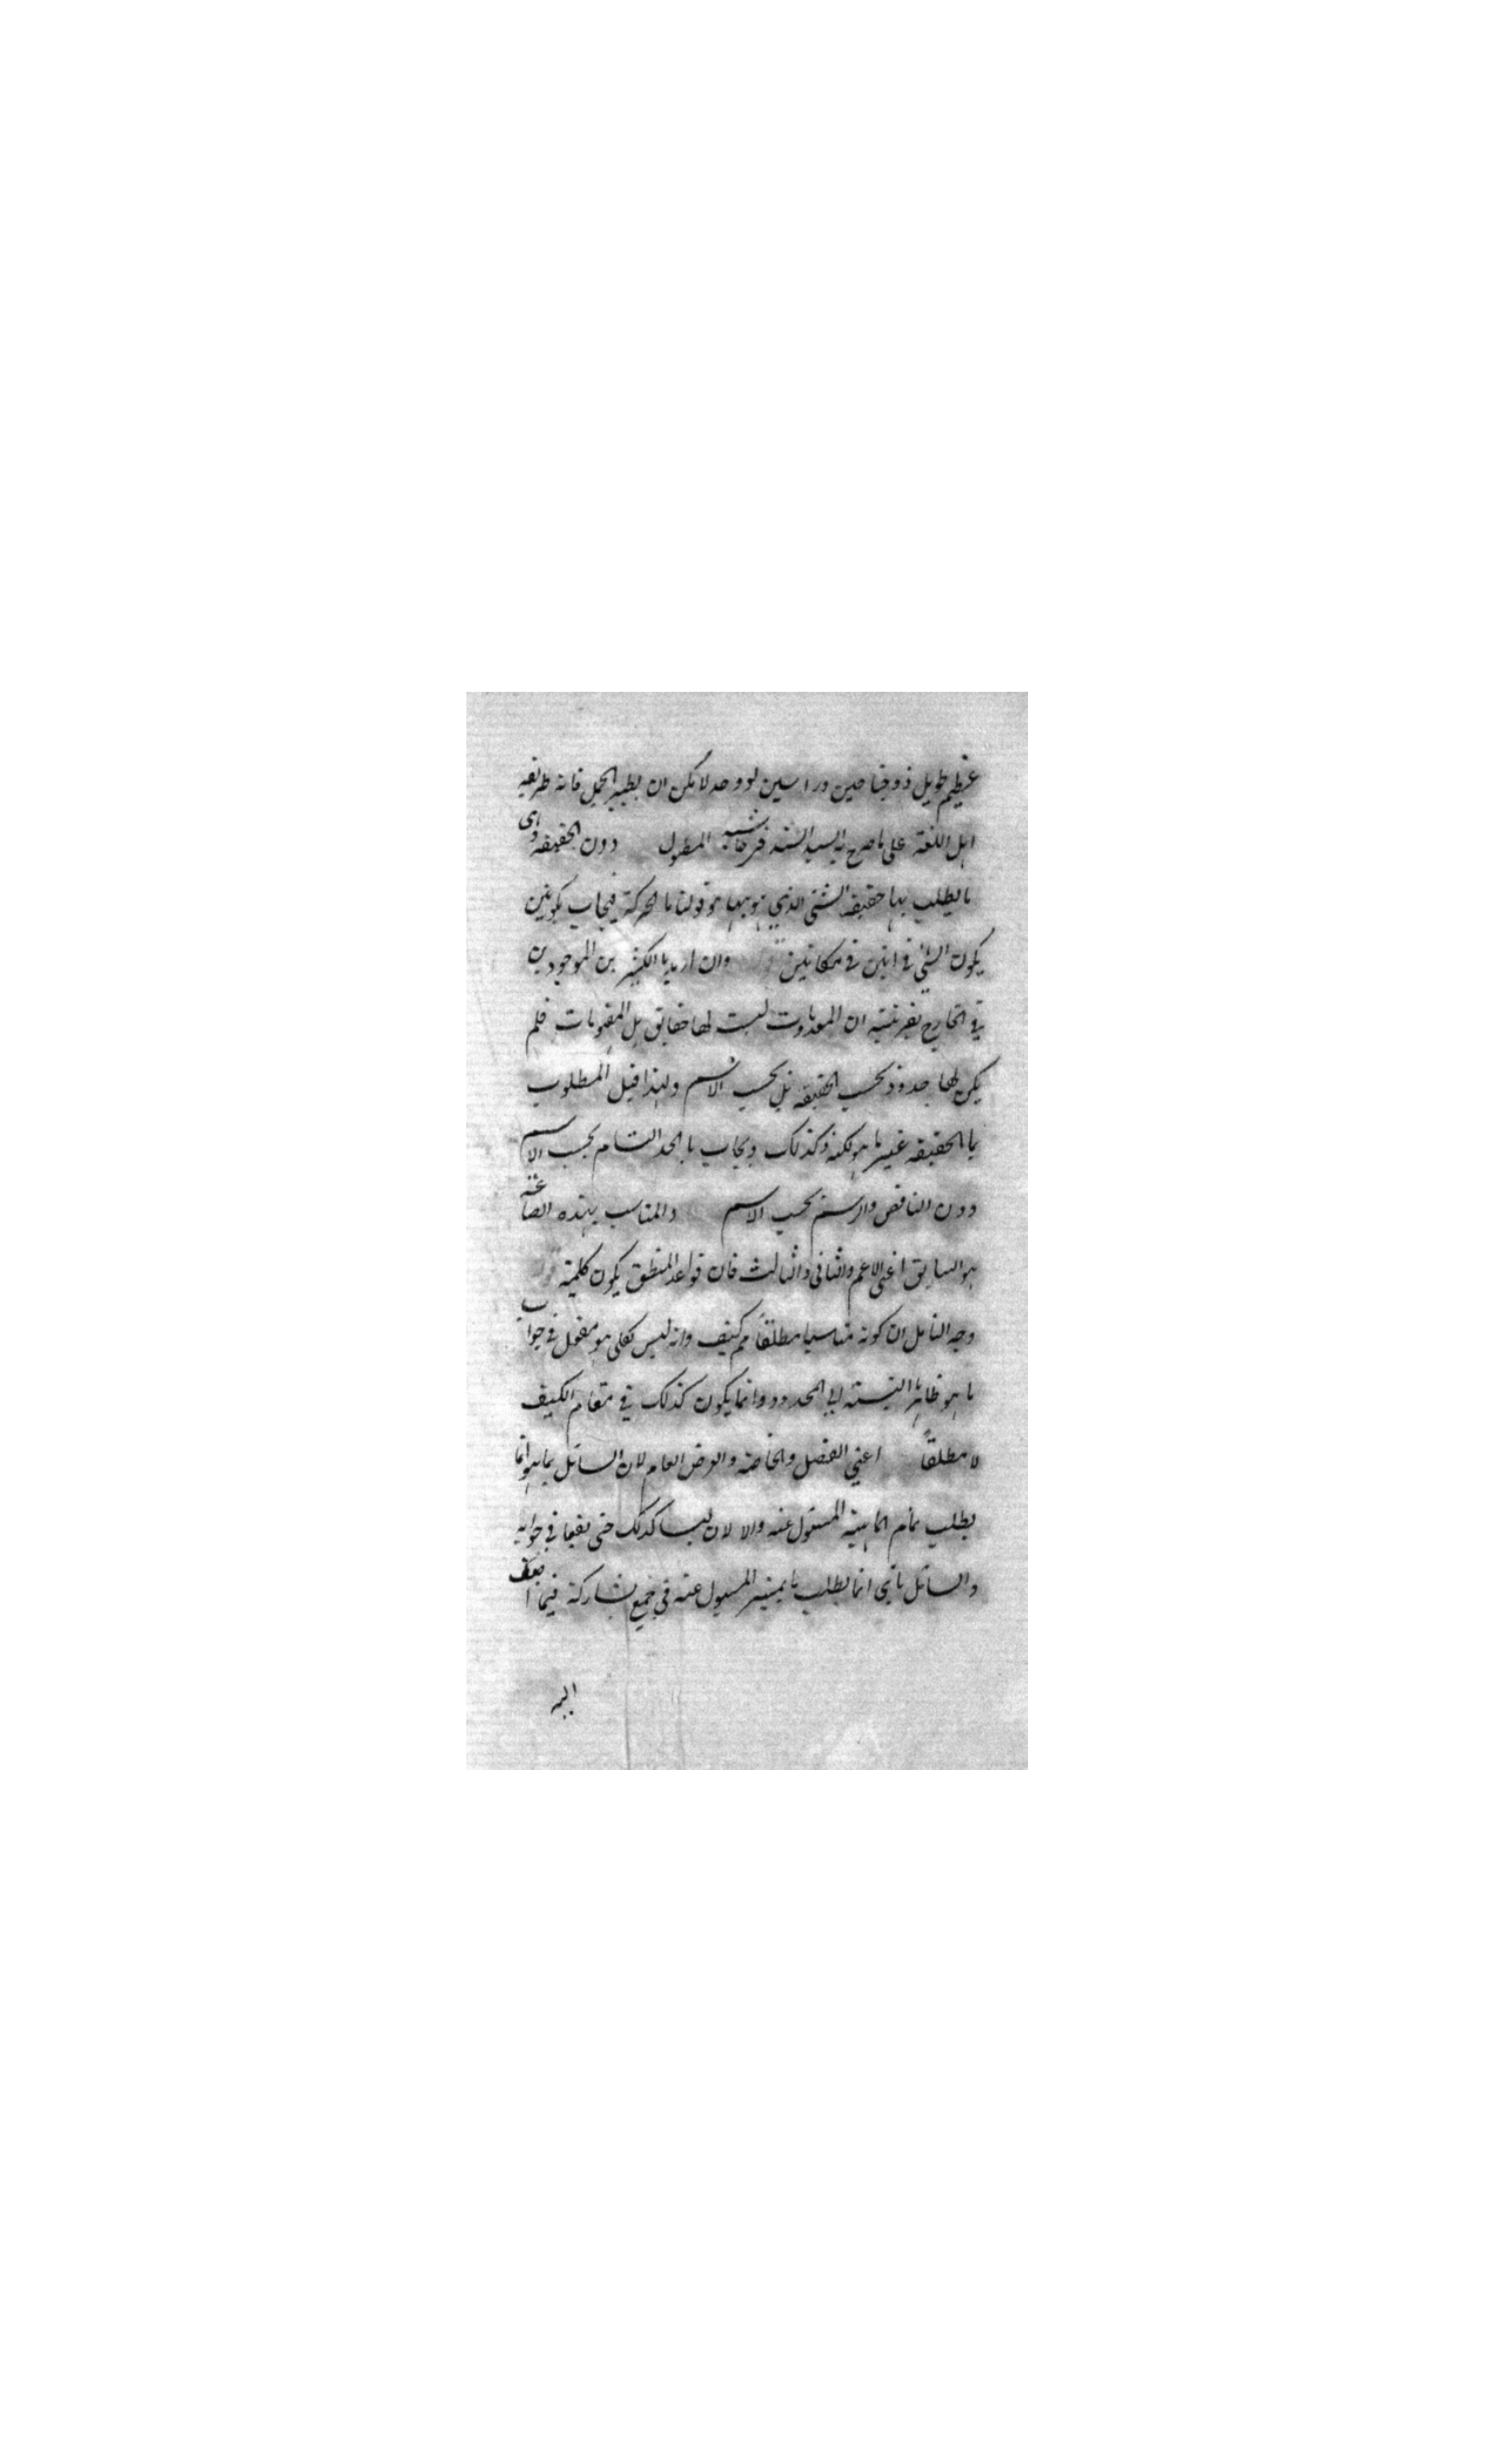 عظيم طويل ذو جناحين وراسين لو وجد لامكن ان يطير الجمل فانه طريقه
اهل اللغة على ما صرح به السيد السند في حاشية المطول دون الحقيقة وهى
ما يطلب بها حقيقة الشئ الذي هو بها هو قولنا ما الحركة فيجاب بكونين
يكون الشئ في اينن في مكانين وان اريد بالكثيرين الموجودين
في الخارج بقرينته ان المعدومات ليست لها حقايق بل المفهومات فلم
يكن لها حدود بحسب الحقيقة بل بحسب الاسم ولهذا قيل المطلوب
بما الحقيقة غير ما هو لكنه كذلك ويجاب بالحد التام بحسب الاسم
دون الناقص والرسم بحسب الاسم والمناسب بهذه الصناعة
هو السابق اعني الاعم والثاني والثالث فان قواعد المنطق يكون كلية
وجه التامل ان كونه مناسبا مطلقاً مم كيف وانه ليس كلى هو مقول في جواب
ما هو ظاهر بالنسبة الى المحدود وانما يكون كذلك في مقام الكيف
لا مطلقاً اعني الفصل والخاصة والعرض العام لان السائل بما هو انما
يطلب تمام الماهية المسئول عنه والا لان ليسا كذلك حتى يقعا في جوابه
والسائل باى انما يطلب ما يميز المسئول عنه في جميع مشاركة فيما اضيف
اليه